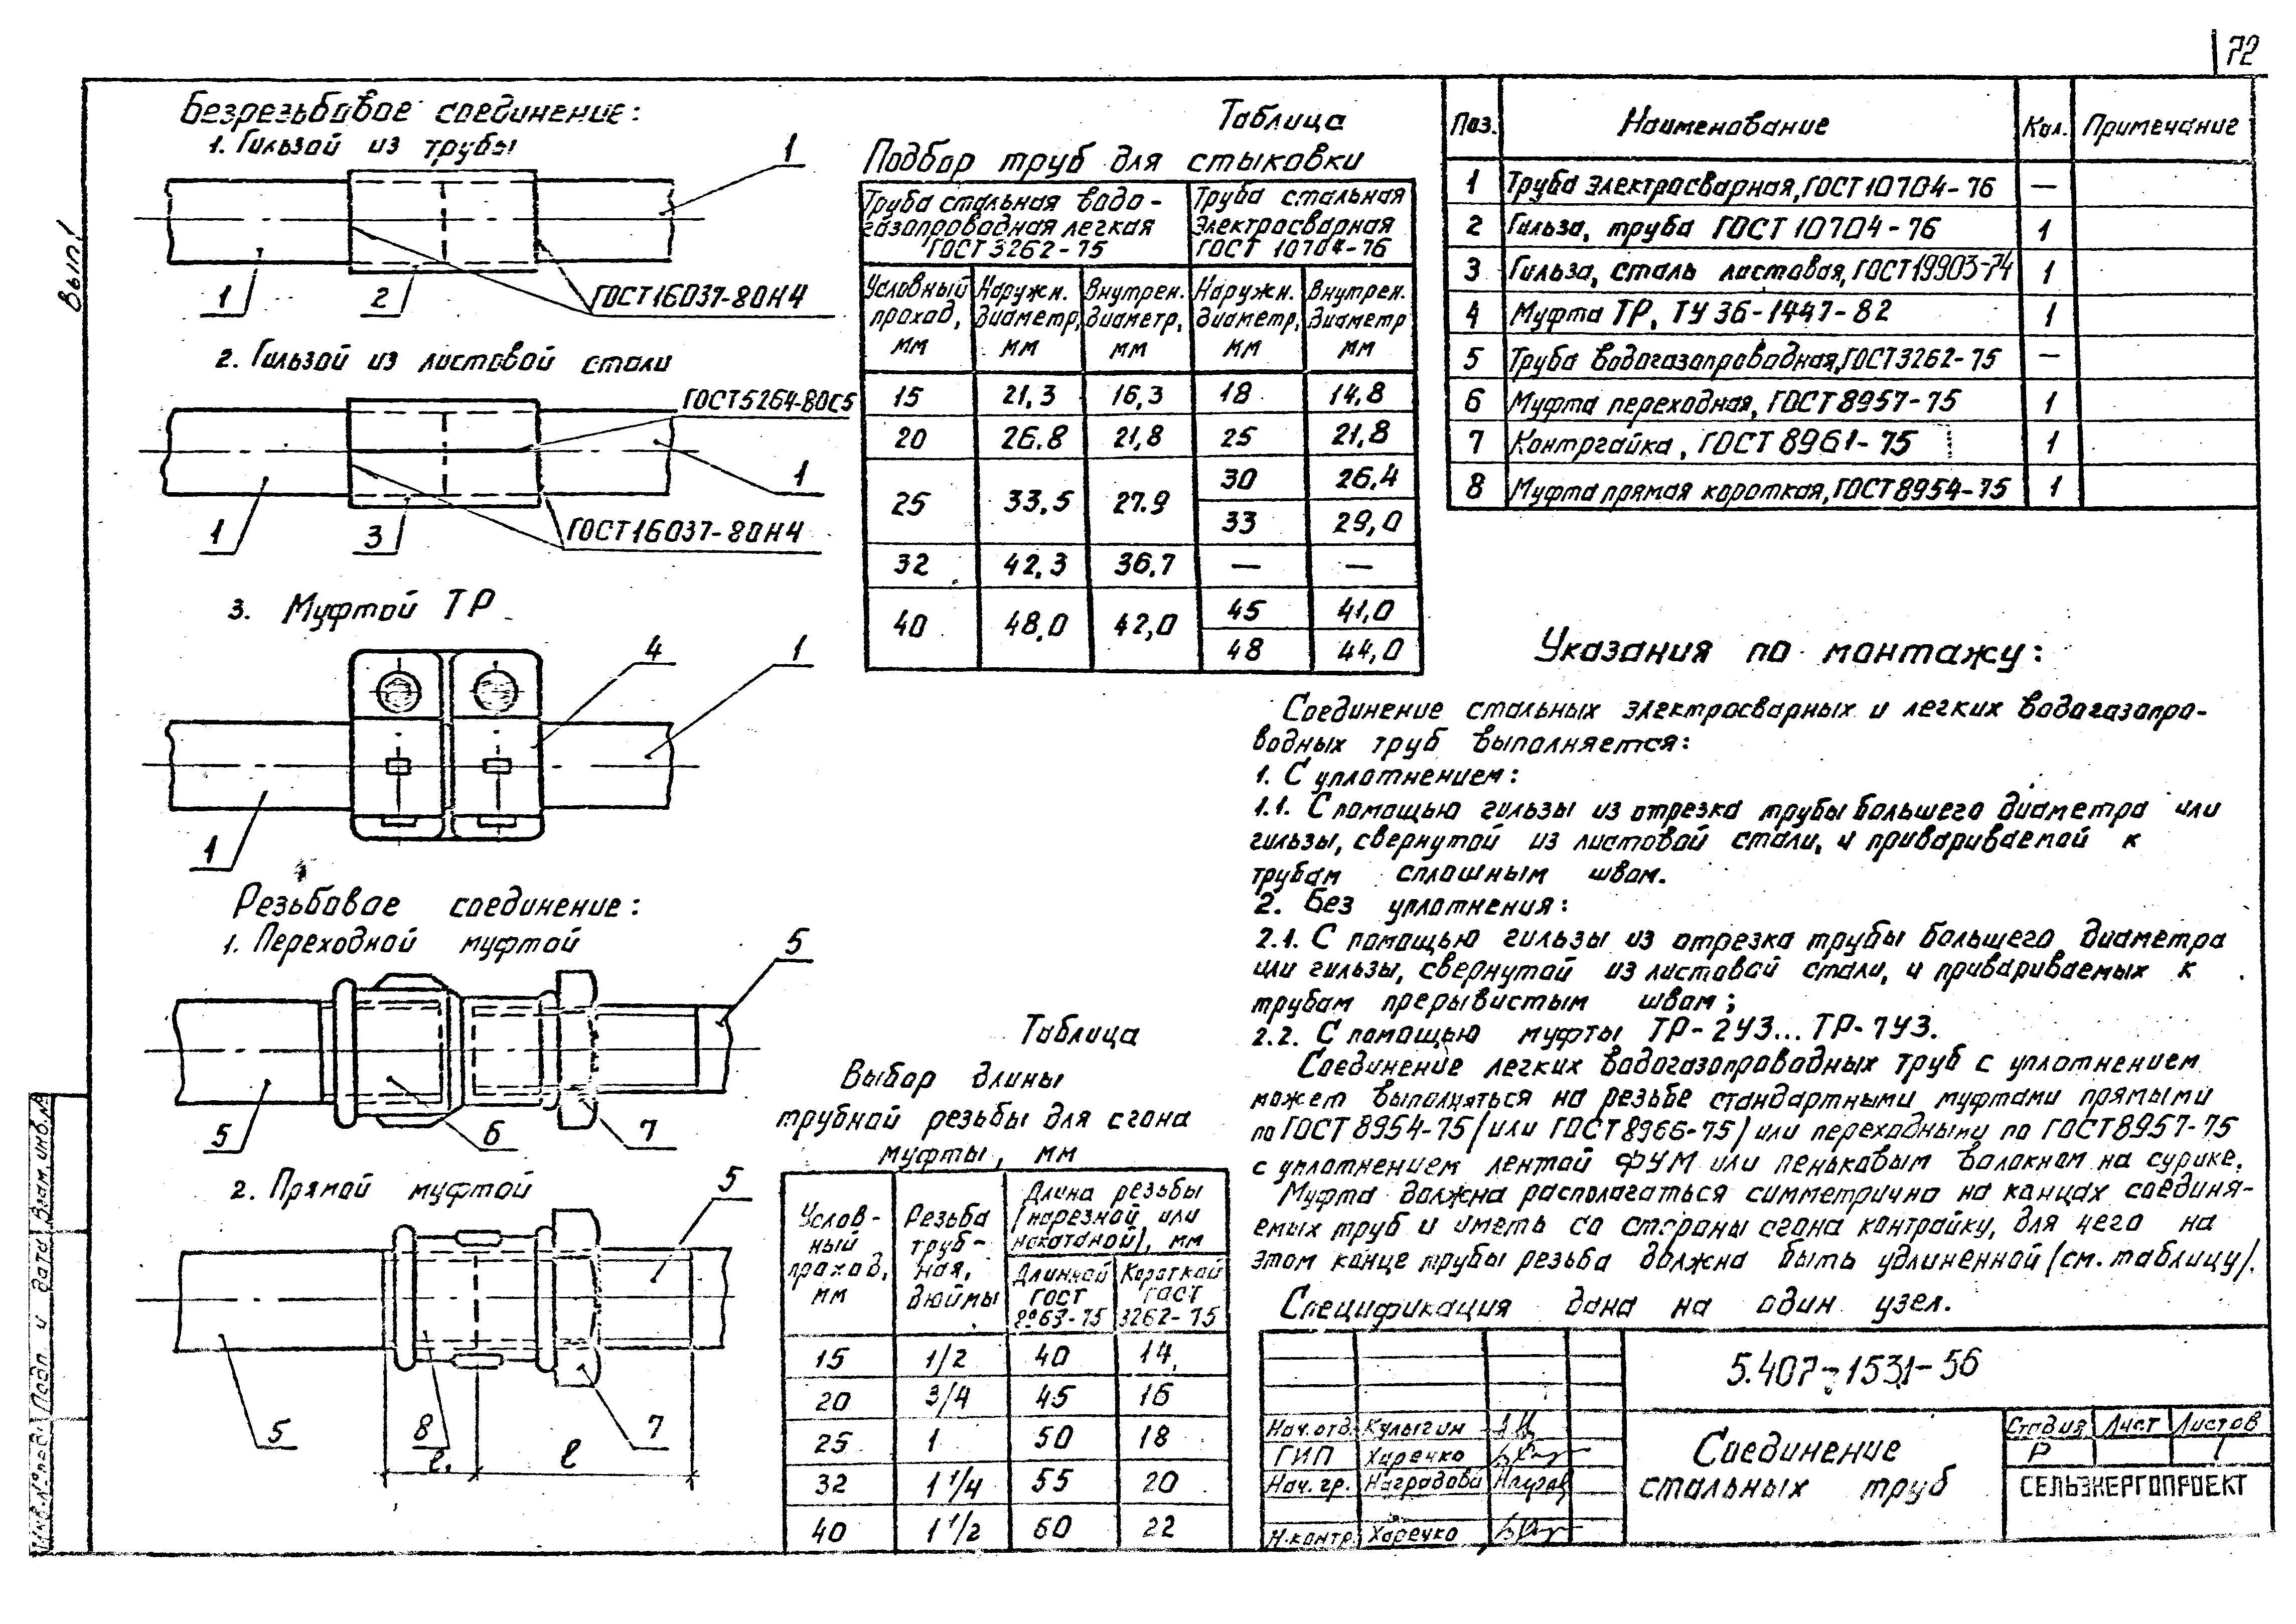 72
Вып.1
Безрезьбовое соединение:
1. Гильзой из трубы
1
1
2
ГОСТ16037-80Н4
2. Гильзой из листовой стали
ГОСТ5264-80С5
1
1
3
ГОСТ16037-80Н4
3. Муфтой ТР
4
1
1
Резьбовое соединение:
1. Переходной муфтой
5
5
6
7
2. Прямой муфтой
5
5
8
7
ℓ₁
ℓ
Таблица
Подбор труб для стыковки
Труба стальная водо-
газопроводная легкая
ГОСТ 3262-75
Труба стальная
электросварная
ГОСТ 10704-76
Условный проход, мм
Наружн. диаметр, мм
Внутрен. диаметр, мм
Наружн. диаметр, мм
Внутрен. диаметр мм
15 21,3 16,3 18 14,8
20 26.8 21,8 25 21,8
25 33,5 27.9 30 26,4
33 29,0
32 42,3 36,7 — —
40 48,0 42,0 45 41,0
48 44,0
Таблица
Выбор длины
трубной резьбы для сгона
муфты, мм
Услов-
ный
проход,
мм
Резьба
труб-
ная,
дюймы
Длина резьбы
(нарезной или
накатаной), мм
Длинной
ГОСТ
8963-75
Короткой
ГОСТ
3262-75
15 1/2 40 14
20 3/4 45 16
25 1 50 18
32 1 1/4 55 20
40 1 1/2 60 22
Поз. Наименование Кол. Примечание
1 Труба электросварная, ГОСТ10704-76 —
2 Гильза, труба ГОСТ 10704-76 1
3 Гильза, сталь листовая, ГОСТ19903-74 1
4 Муфта ТР, ТУ 36-1447-82 1
5 Труба водогазопроводная, ГОСТ3262-75 —
6 Муфта переходная, ГОСТ8957-75 1
7 Контргайка, ГОСТ 8961-75 1
8 Муфта прямая короткая, ГОСТ8954-75 1
Указания по монтажу:
Соединение стальных электросварных и легких водогазопро-
водных труб выполняется:
1. С уплотнением:
1.1. С помощью гильзы из отрезка трубы большего диаметра или
гильзы, свернутой из листовой стали, и привариваемой к
трубам сплошным швом.
2. Без уплотнения:
2.1. С помощью гильзы из отрезка трубы большего диаметра
или гильзы, свернутой из листовой стали, и привариваемых к
трубам прерывистым швом;
2.2. С помощью муфты ТР-2У3... ТР-7У3.
Соединение легких водогазопроводных труб с уплотнением
может выполняться на резьбе стандартными муфтами прямыми
по ГОСТ 8954-75 (или ГОСТ8966-75) или переходными по ГОСТ8957-75
с уплотнением лентой ФУМ или пеньковым волокном на сурике.
Муфта должна располагаться симметрично на концах соединя-
емых труб и иметь со стороны сгона контрайку, для чего на
этом конце трубы резьба должна быть удлиненной (см. таблицу).
Спецификация дана на один узел.
5.407-153.1-56
Нач.отд. Кулыгин
ГИП Харечко
Нач. гр. Наградова
Н.контр. Харечко
Соединение
стальных труб
Стадия Лист Листов
Р 1
СЕЛЬЭНЕРГОПРОЕКТ
Инв.№ подл. Подп. и дата Взам.инв.№